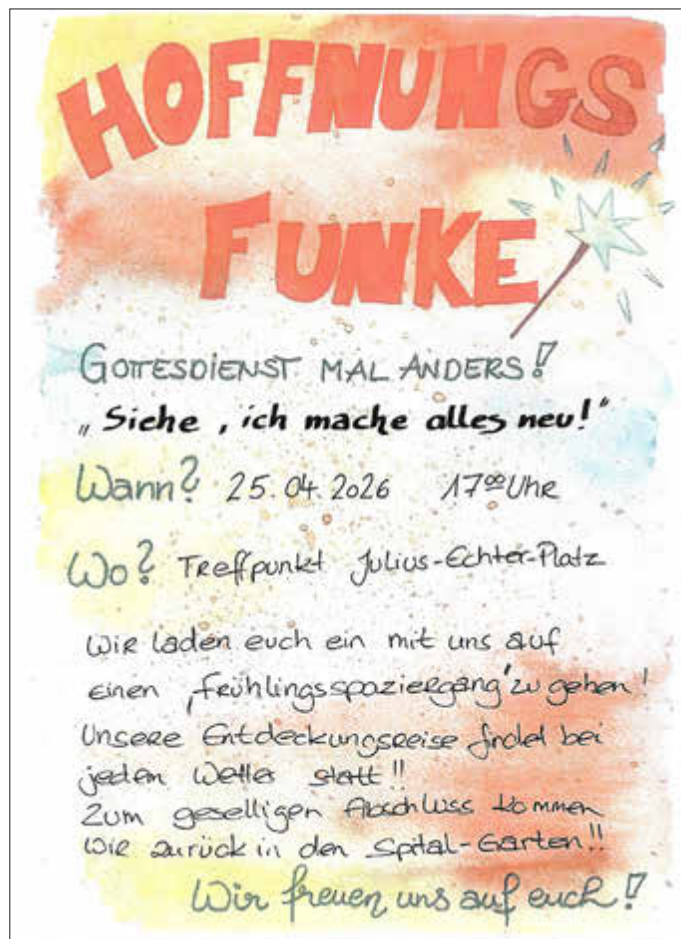 HOFFNUNGS
FUNKE
GOTTESDIENST MAL ANDERS!
„Siehe, ich mache alles neu!"
Wann? 25.04.2026 17⁰⁰ Uhr
Wo? Treffpunkt Julius-Echter-Platz
Wir laden euch ein mit uns auf
einen ‚Frühlingsspaziergang' zu gehen!
Unsere Entdeckungsreise findet bei
jedem Wetter statt!!
Zum geselligen Abschluss kommen
wir zurück in den Spital-Garten!!
Wir freuen uns auf euch!